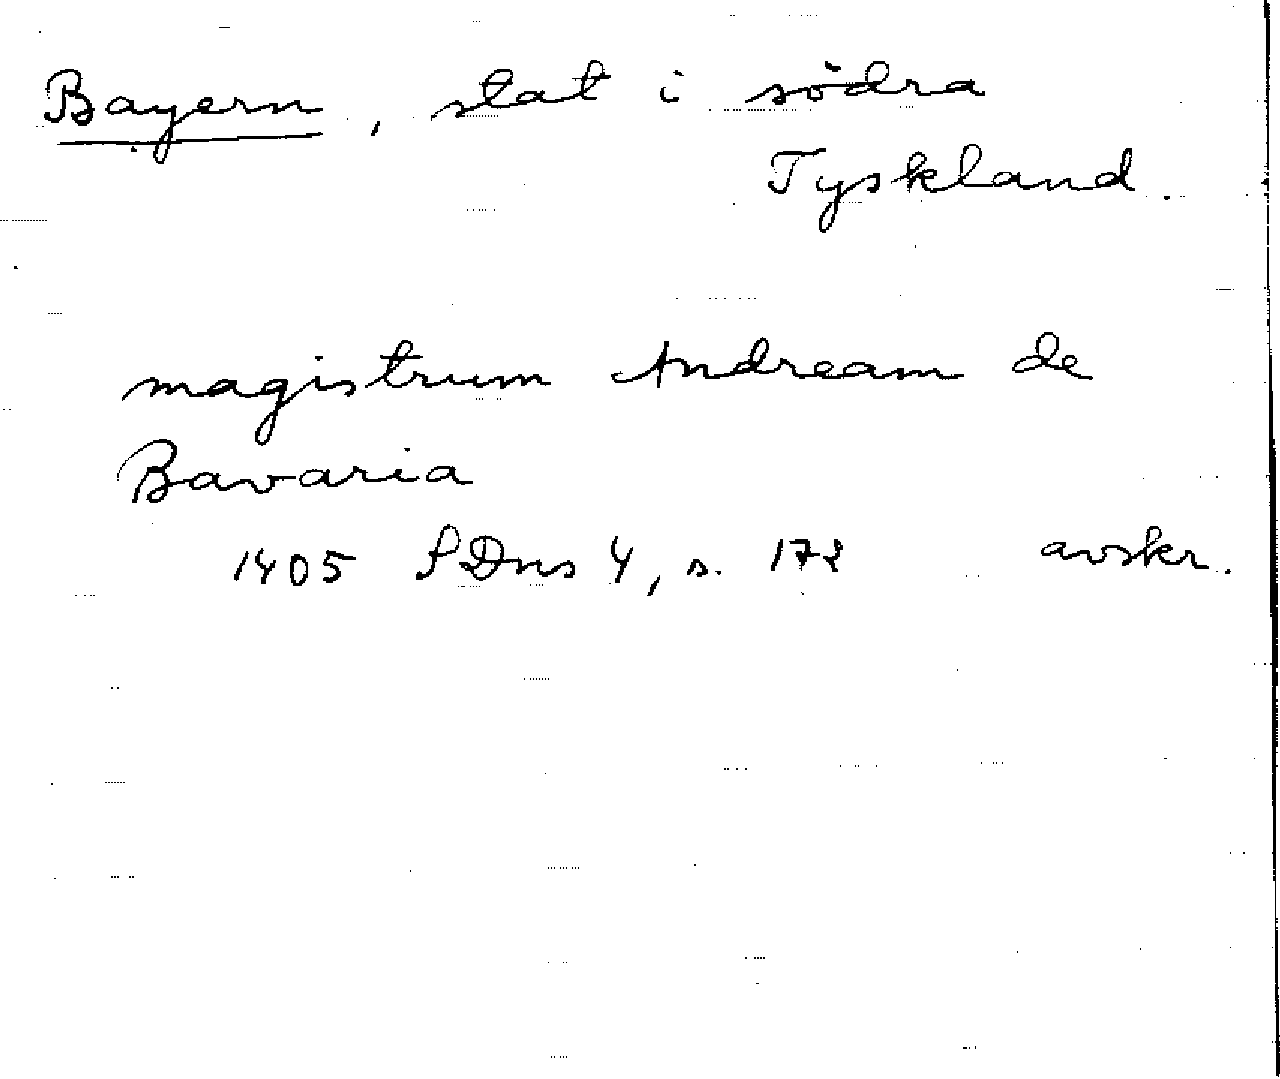 Bayern, stat i södra
Tyskland.
magistrum Andream de
Bavaria
1405 SDns 4, s. 172 avskr.